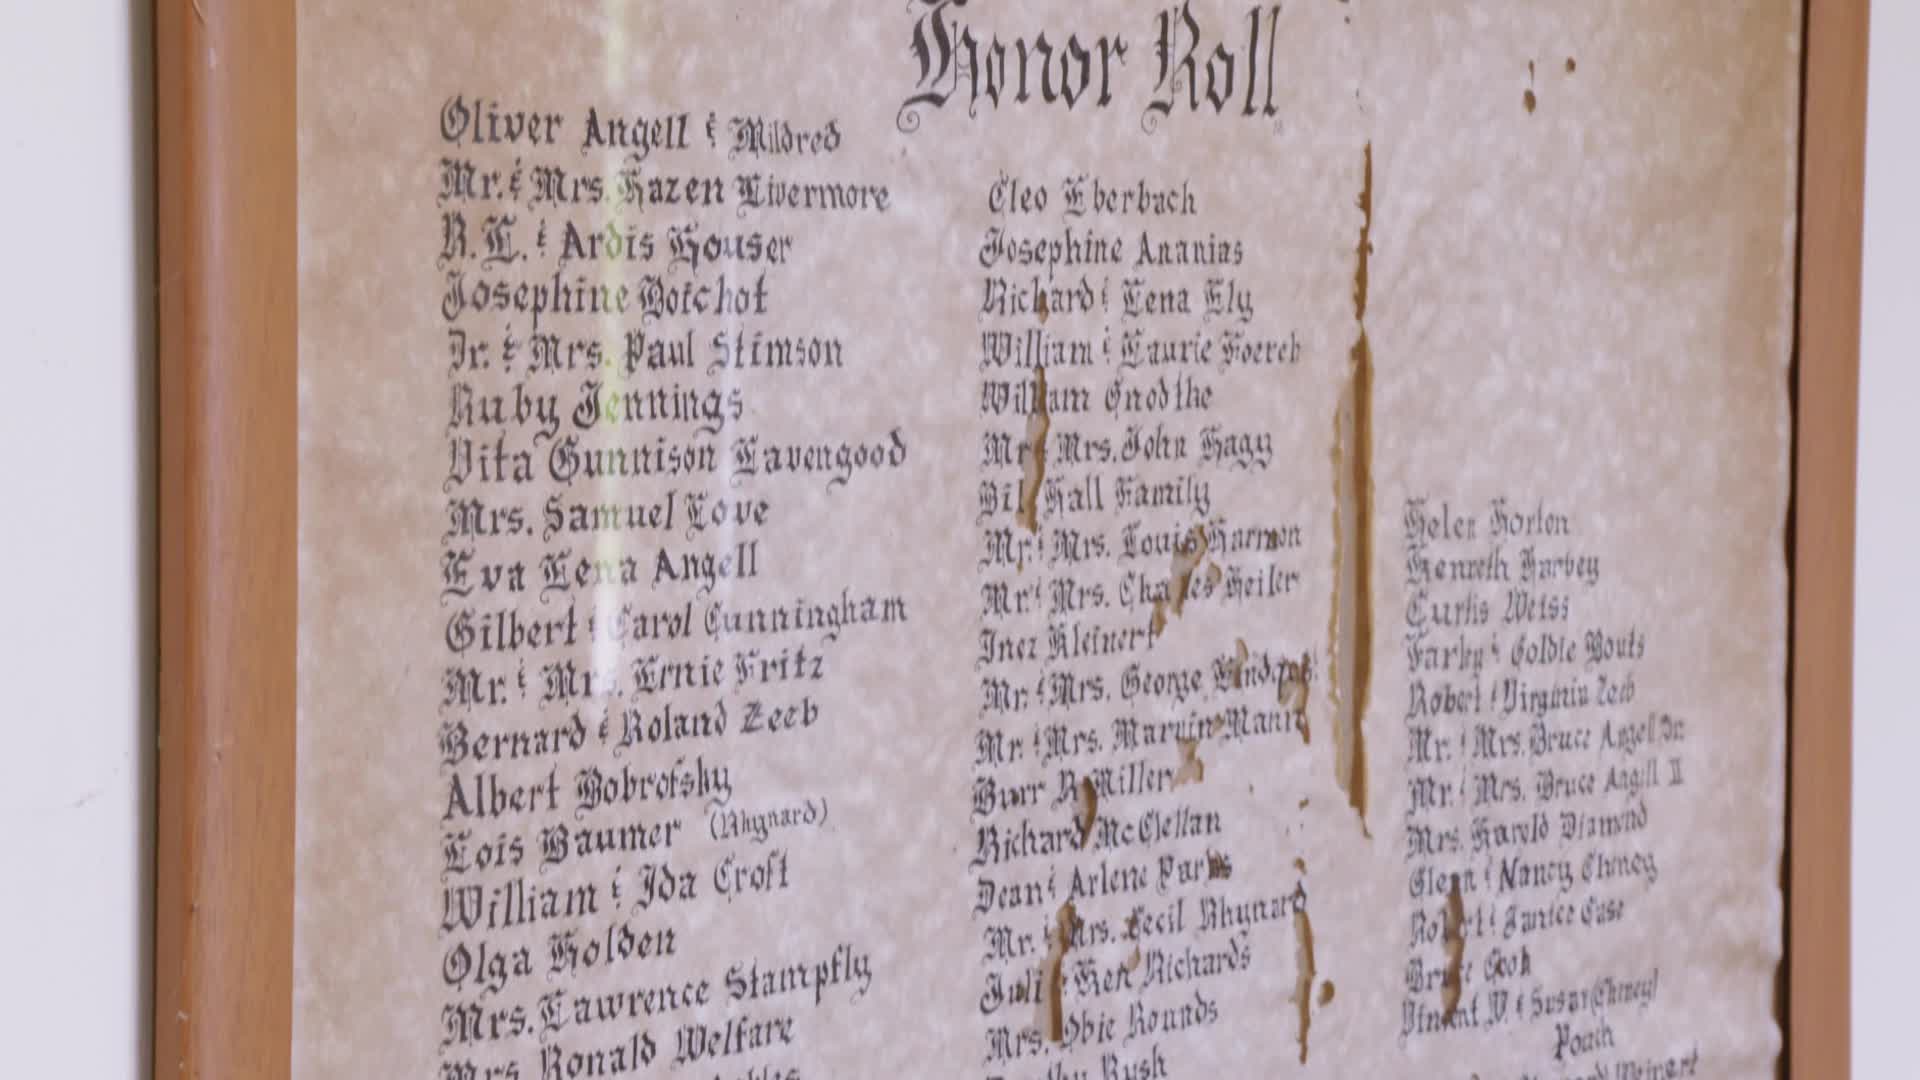 Honor Roll
Oliver Angell & Mildred
Mr. & Mrs. Hazen Livermore
R.L. & Ardis Houser
Josephine Boichot
Dr. & Mrs. Paul Stimson
Ruby Jennings
Vita Gunnison Lavengood
Mrs. Samuel Love
Eva Lena Angell
Gilbert & Carol Cunningham
Mr. & Mrs. Ernie Fritz
Bernard & Roland Zeeb
Albert Bobrofsky
Lois Baumer (Rhynard)
William & Ida Croft
Olga Holden
Mrs. Lawrence Stampfly
Mrs Ronald Welfare
Cleo Eberbach
Josephine Ananias
Richard & Lena Ely
William & Laurie Foerch
William Gnodthe
Mr & Mrs. John Hagy
Bill Hall Family
Mr. & Mrs. Louis Harmon
Mr. & Mrs. Charles Heiler
Inez Kleinert
Mr. & Mrs. George
Mr. & Mrs. Marvin Mann
Burr R Miller
Richard McClellan
Dean & Arlene Parks
Mr. & Mrs. Cecil Rhynard
Juli & Ken Richards
Mrs. Obie Rounds
Rush
Helen Horton
Kenneth Harvey
Curtis Weiss
& Goldie Bouts
Robert & Virginia Zeeb
Mr. & Mrs. Bruce Angell Jr.
Mr. & Mrs. Bruce Angell II
Mrs. Harold Diamond
Glenn & Nancy Cheney
Robert & Janice Case
Bruce Cook
Vincent V. & Susan (Cheney)
Poach